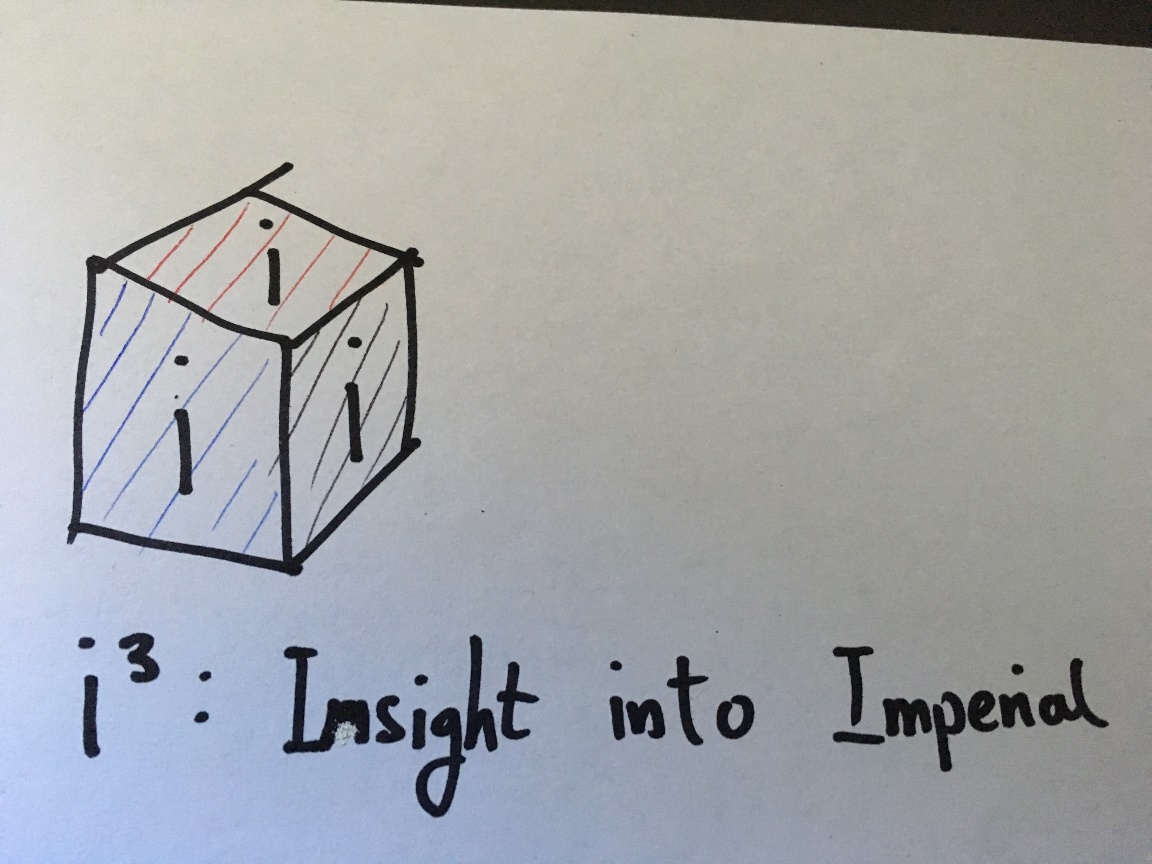 i
i
i
i³: Insight into Imperial